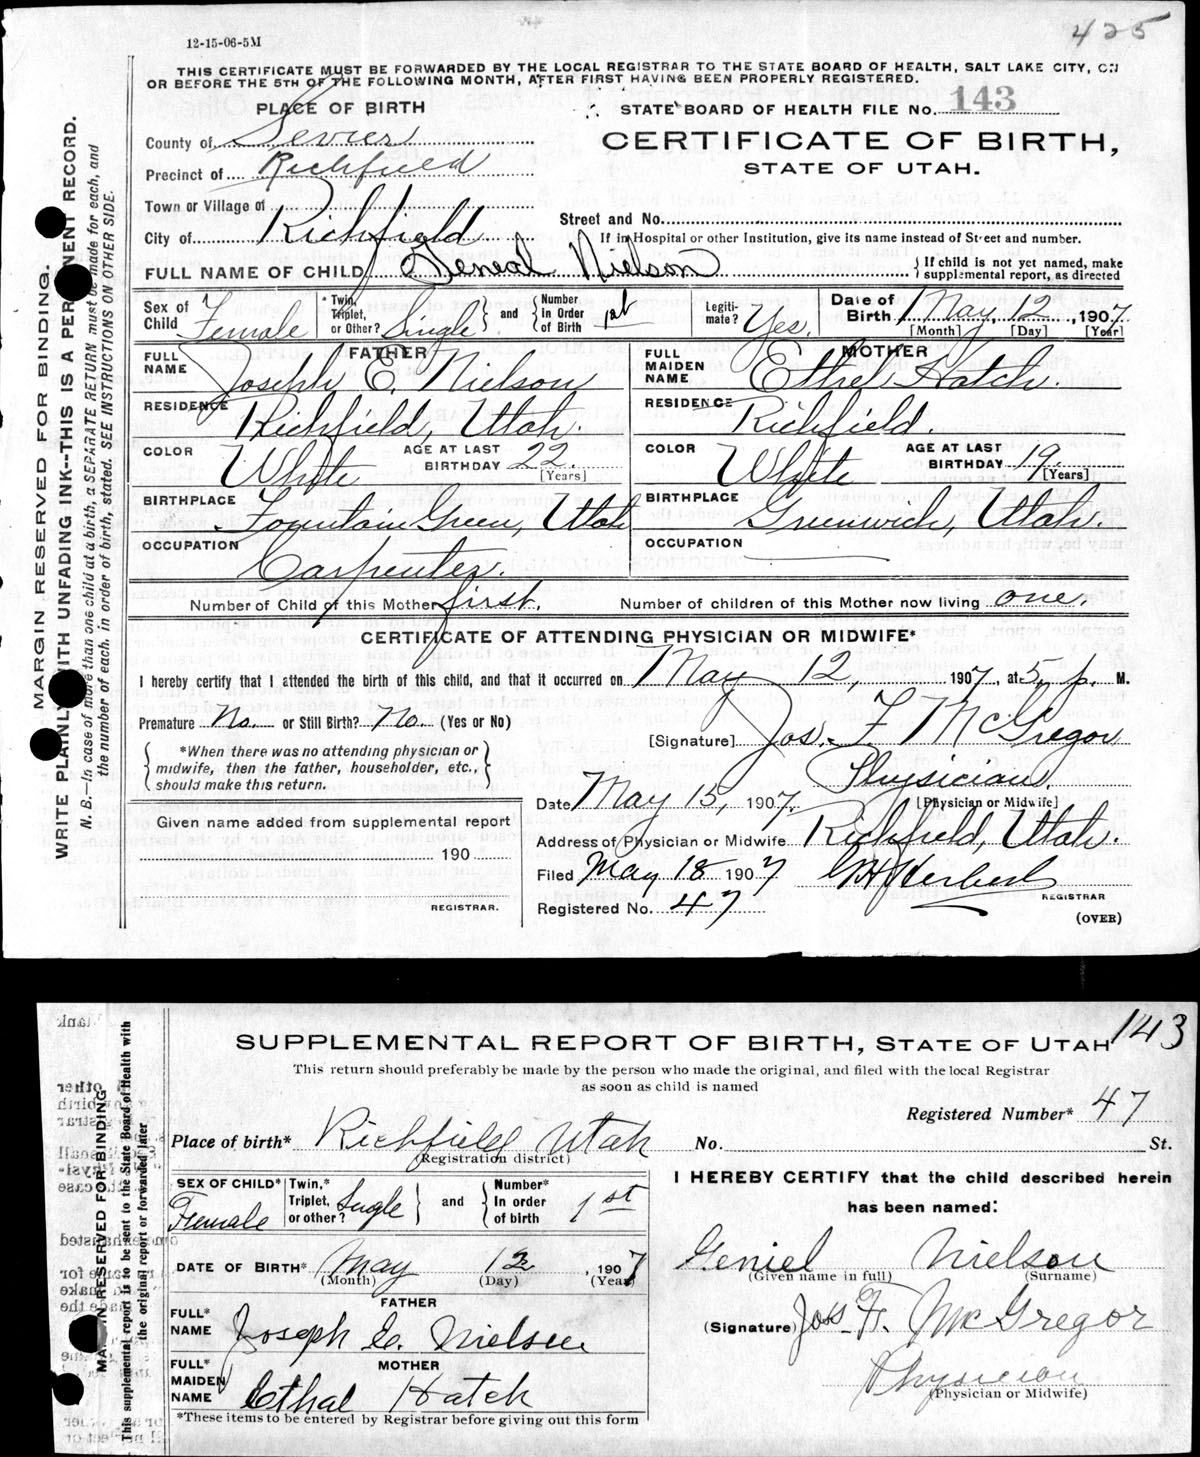 425
12-15-06-5M
THIS CERTIFICATE MUST BE FORWARDED BY THE LOCAL REGISTRAR TO THE STATE BOARD OF HEALTH, SALT LAKE CITY, ON
OR BEFORE THE 5TH OF THE FOLLOWING MONTH, AFTER FIRST HAVING BEEN PROPERLY REGISTERED.
PLACE OF BIRTH
STATE BOARD OF HEALTH FILE No. 143
County of Sevier
CERTIFICATE OF BIRTH,
Precinct of Richfield
STATE OF UTAH.
Town or Village of
Street and No.
City of Richfield
If in Hospital or other Institution, give its name instead of Street and number.
FULL NAME OF CHILD Geneal Nielson
If child is not yet named, make supplemental report, as directed
Sex of Child Female Twin, Triplet, or Other? Single and Number in Order of Birth 1st Legitimate? Yes. Date of Birth May, 12, 1907.
[Month] [Day] [Year]
FATHER MOTHER
FULL NAME Joseph E. Nielson FULL MAIDEN NAME Ethel Hatch.
RESIDENCE Richfield, Utah. RESIDENCE Richfield.
COLOR White AGE AT LAST BIRTHDAY 22. [Years] COLOR White AGE AT LAST BIRTHDAY 19. [Years]
BIRTHPLACE Fountain Green, Utah BIRTHPLACE Greenwich, Utah.
OCCUPATION Carpenter. OCCUPATION
Number of Child of this Mother first. Number of children of this Mother now living one.
CERTIFICATE OF ATTENDING PHYSICIAN OR MIDWIFE*
I hereby certify that I attended the birth of this child, and that it occurred on May 12, 1907, at 5, p. M.
Premature No. or Still Birth? No. (Yes or No)
[Signature] Jos. F McGregor
*When there was no attending physician or
midwife, then the father, householder, etc.,
should make this return.
Physician.
Date May 15, 1907. [Physician or Midwife]
Given name added from supplemental report
Address of Physician or Midwife Richfield, Utah.
190
Filed May 18 1907 Herbert
REGISTRAR
REGISTRAR.
Registered No. 47
(OVER)
MARGIN RESERVED FOR BINDING.
WRITE PLAINLY WITH UNFADING INK--THIS IS A PERMANENT RECORD.
N. B.--In case of more than one child at a birth, a SEPARATE RETURN must be made for each, and
the number of each, in order of birth, stated. SEE INSTRUCTIONS ON OTHER SIDE.
143
SUPPLEMENTAL REPORT OF BIRTH, STATE OF UTAH
This return should preferably be made by the person who made the original, and filed with the local Registrar
as soon as child is named
Registered Number* 47
Place of birth* Richfield Utah No. St.
(Registration district)
SEX OF CHILD* Female Twin,* Triplet, or other? Single and Number* In order of birth 1st
I HEREBY CERTIFY that the child described herein
has been named:
DATE OF BIRTH* May 12, 1907
(Month) (Day) (Year)
Geniel Nielson
(Given name in full) (Surname)
FATHER
FULL* NAME Joseph E. Nielsen
(Signature) Jos F. McGregor
MOTHER
FULL* MAIDEN NAME Ethal Hatch
Physician
(Physician or Midwife)
*These items to be entered by Registrar before giving out this form
MARGIN RESERVED FOR BINDING
This supplemental report is to be sent to the State Board of Health with
the original report or forwarded later